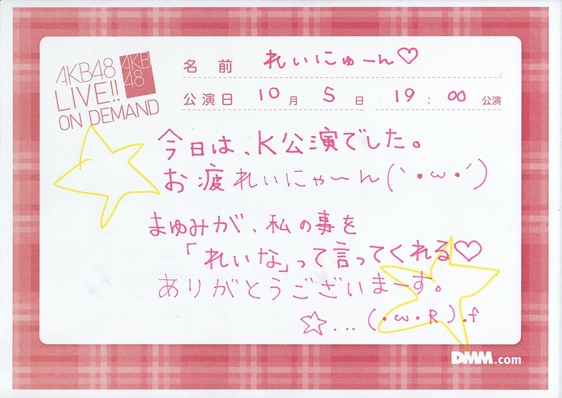 AKB48
LIVE!!
ON DEMAND
AKB
48
名前 れいにゅーん♡
公演日 10月 5日 19:00 公演
今日は、K公演でした。
お疲れいにゃーん(`・ω・´)
まゆみが、私の事を
「れいな」って言ってくれる♡
ありがとうございまーす。
☆...(・ω・R).f
DMM.com